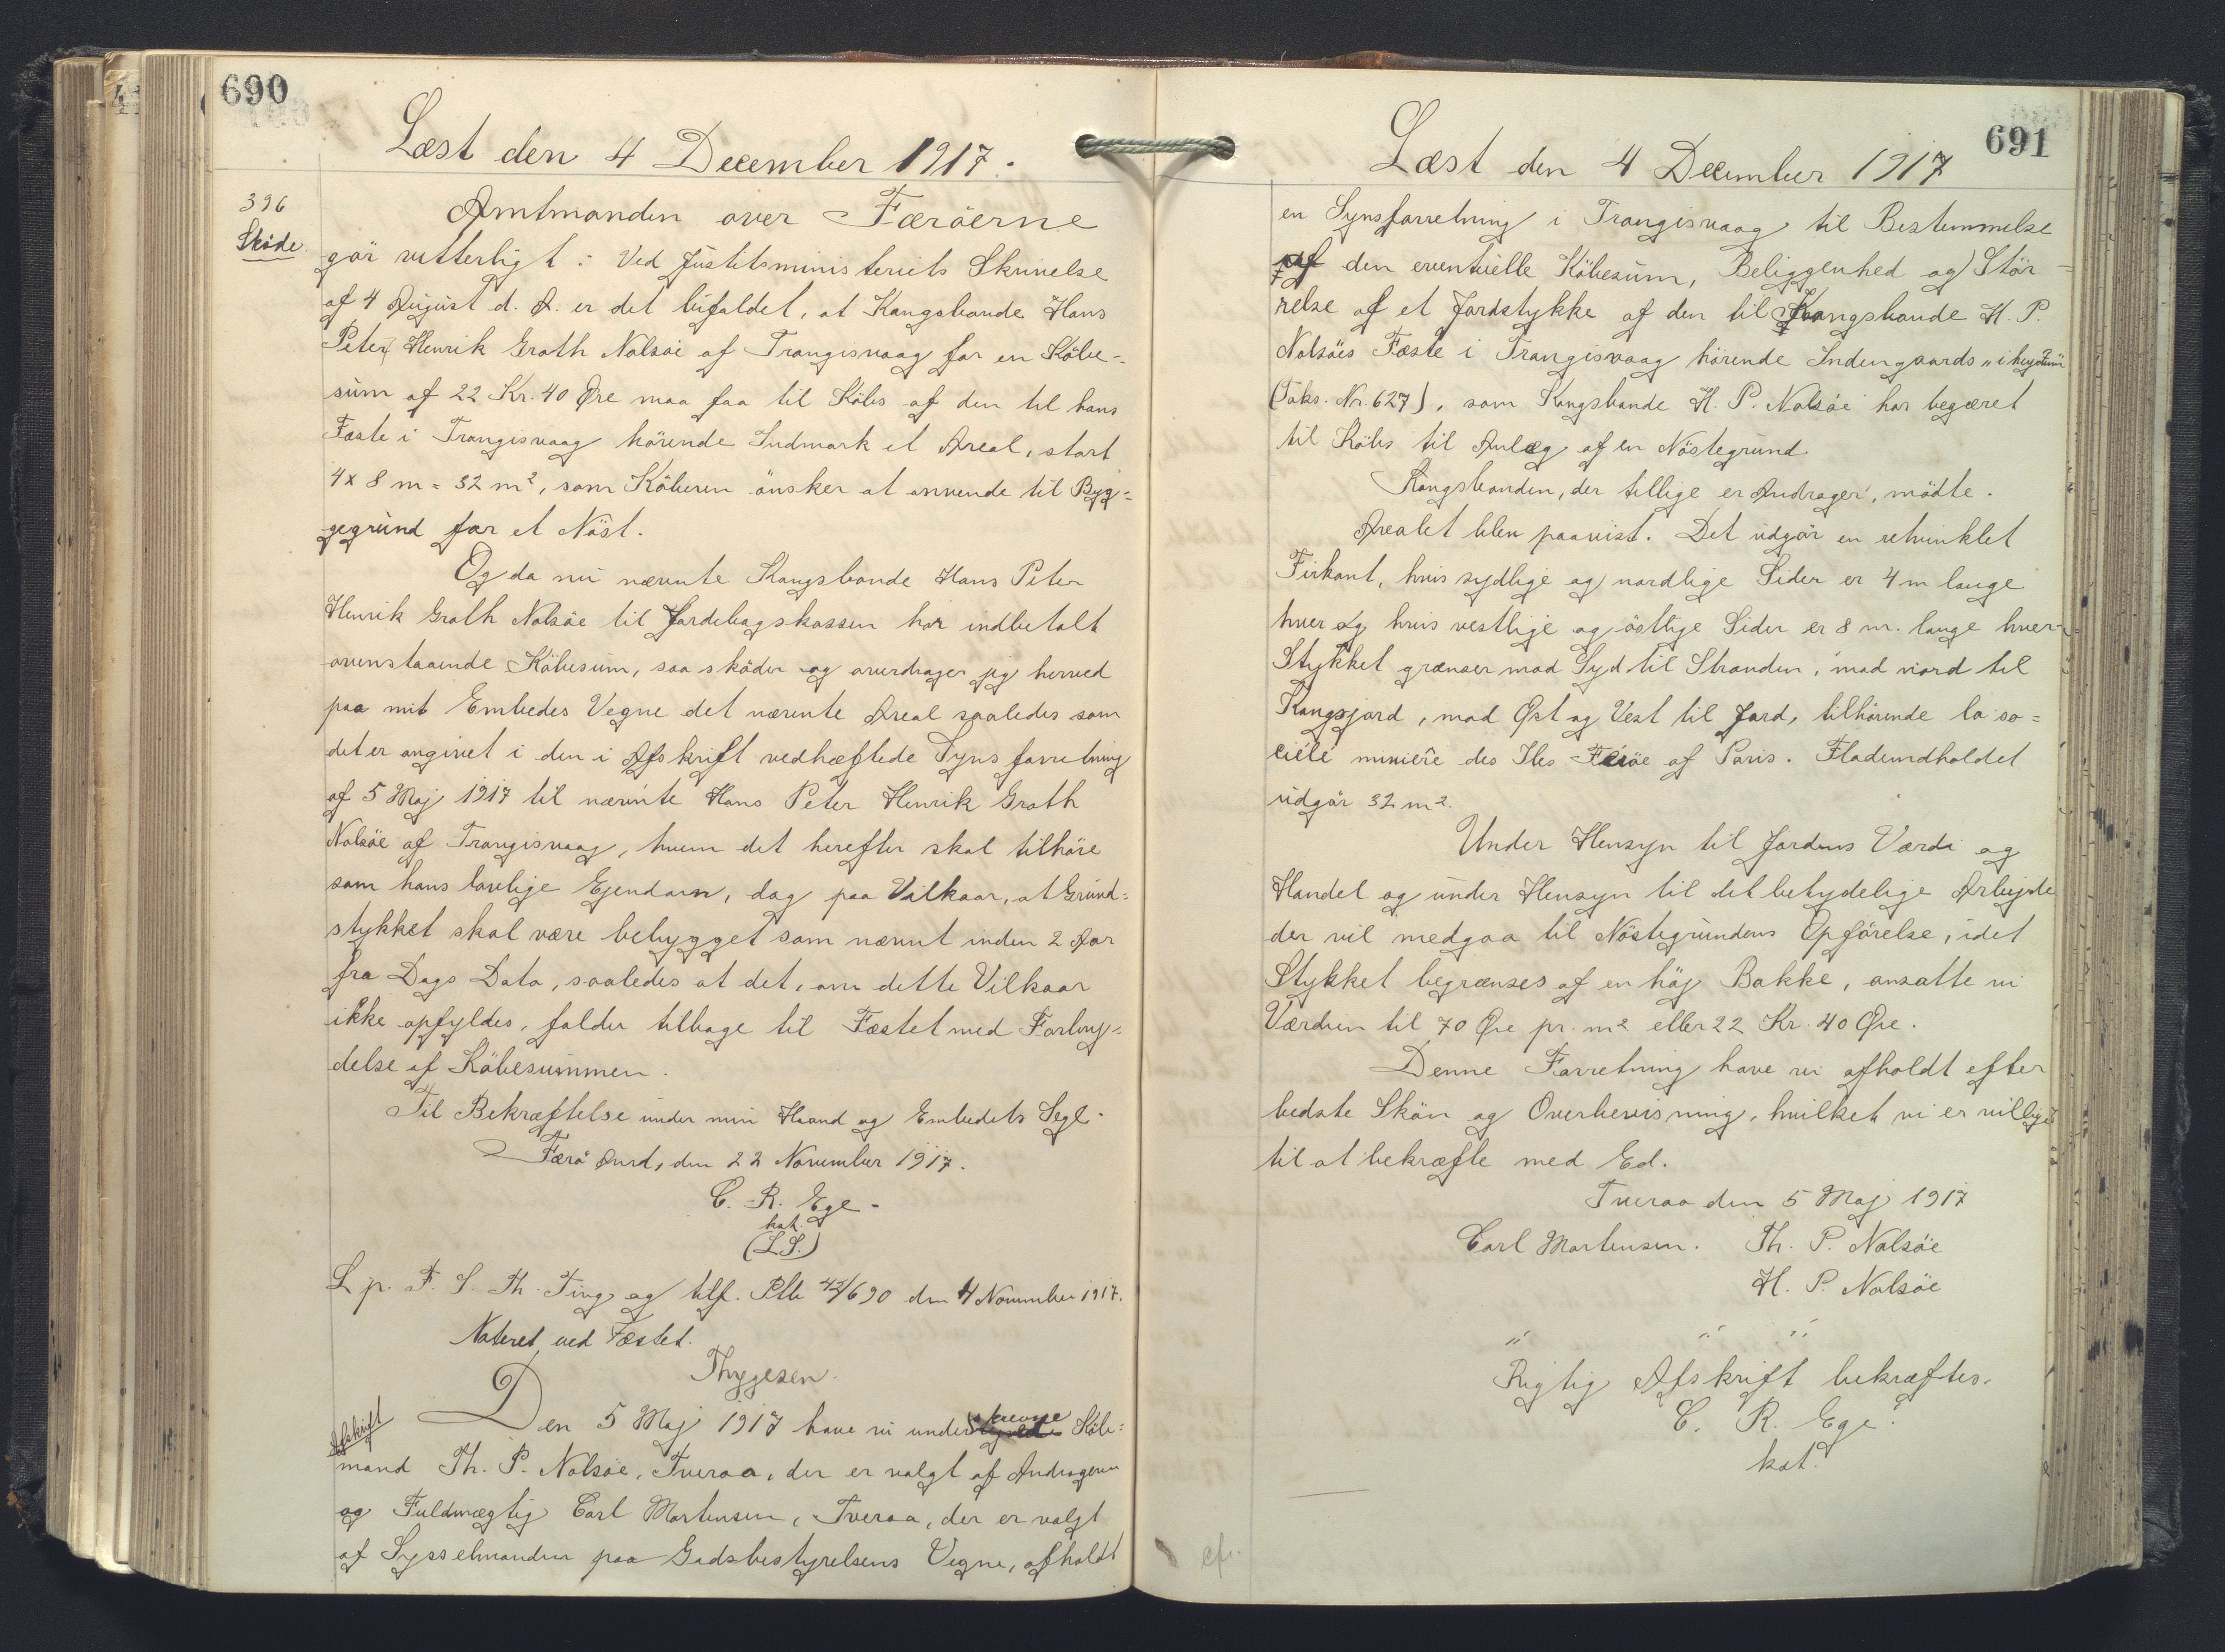 690
Læst den 4 December 1917.
396
Sköde.
Amtmanden over Færöerne
gör vitterligt: Ved Justitsministeriets Skrivelse
af 4 August d. A. er det bifaldet, at Kongsbonde Hans
Peter Henrik Groth Nolsöe af Trangisvaag for en Köbe-
sum af 22 Kr. 40 Øre maa faa til Købs af den til hans
Fæste i Trangisvaag hörende Indmark et Areal, stort
4 x 8 m = 32 m², som Köberen önsker at anvende til Byg=
gegrund for et Nöst.
Og da nu nævnte Kongsbonde Hans Peter
Henrik Groth Nolsöe til Jordebogskassen har indbetalt
ovenstaaende Köbesum, saa sköder og overdrager jeg herved
paa mit Embedes Vegne det nævnte Areal saaledes som
det er angivet i den i Afskrift vedhæftede Synsforretning
af 5 Maj 1917 til nævnte Hans Peter Henrik Groth
Nolsöe af Trangisvaag, hvem det herefter skal tilhöre
som hans lovlige Ejendom, dog paa Vilkaar, at Grund=
stykket skal være bebygget som nævnt inden 2 Aar
fra Dags Dato, saaledes at det, om dette Vilkaar
ikke opfyldes, falder tilbage til Fæstet med Fortry=
delse af Köbesummen.
Til Bekræftelse under min Haand og Embedets Segl.
Færö Amt, den 22 November 1917.
C. R. Ege.
kst.
(L.S.)
L p. F. S. Th. Ting og tilf. Plb 42/690 den 4 November 1917.
Noteret ved Fæstet.
Thygesen.
Afskrift
Den 5 Maj 1917 have vi underskrevne Köb=
mand Th. P. Nolsöe, Tveraa, der er valgt af Andrageren
og Fuldmægtig Carl Mortensen, Tveraa, der er valgt
af Sysselmanden paa Godsbestyrelsens Vegne, afholdt
691
Læst den 4 December 1917
en Synsforretning i Trangisvaag til Bestemmelse
af den eventuelle Köbesum, Beliggenhed og Stör=
relse af et Jordstykke af den til Kongsbonde H. P.
Nolsöes Fæste i Trangisvaag hörende Indengaards
(Söks. Nr. 627), som Kongsbonde H. P. Nolsöe har begæret
til Købs til Anlæg af en Nöstegrund.
Kongsbonden, der tillige er Andrager, mödte.
Arealet blev paavist. Det udgör en retvinklet
Firkant, hvis sydlige og nordlige Sider er 4 m lange
hver og hvis vestlige og östlige Sider er 8 m. lange hver.
Stykket grænser mod Syd til Stranden, mod nord til
Kongsjord, mod Øst og Vest til Jord, tilhörende la so=
ciété minière des Iles Feröe af Paris. Fladeindholdet
udgör 32 m².
Under Hensyn til Jordens Værdi og
Handel og under Hensyn til det betydelige Arbejde
der vil medgaa til Nöstegrundens Opförelse, idet
Stykket begrænses af en höj Bakke, ansatte vi
Værdien til 70 Øre pr. m² eller 22 Kr. 40 Øre.
Denne Forretning have vi afholdt efter
bedste Skön og Overbevisning, hvilket vi er villige
til at bekræfte med Ed.
Tveraa den 5 Maj 1917
Carl Mortensen. Th. P. Nolsöe
H. P. Nolsöe
" " "
Rigtig Afskrift bekræftes.
C. R. Ege.
kst.
cfr.